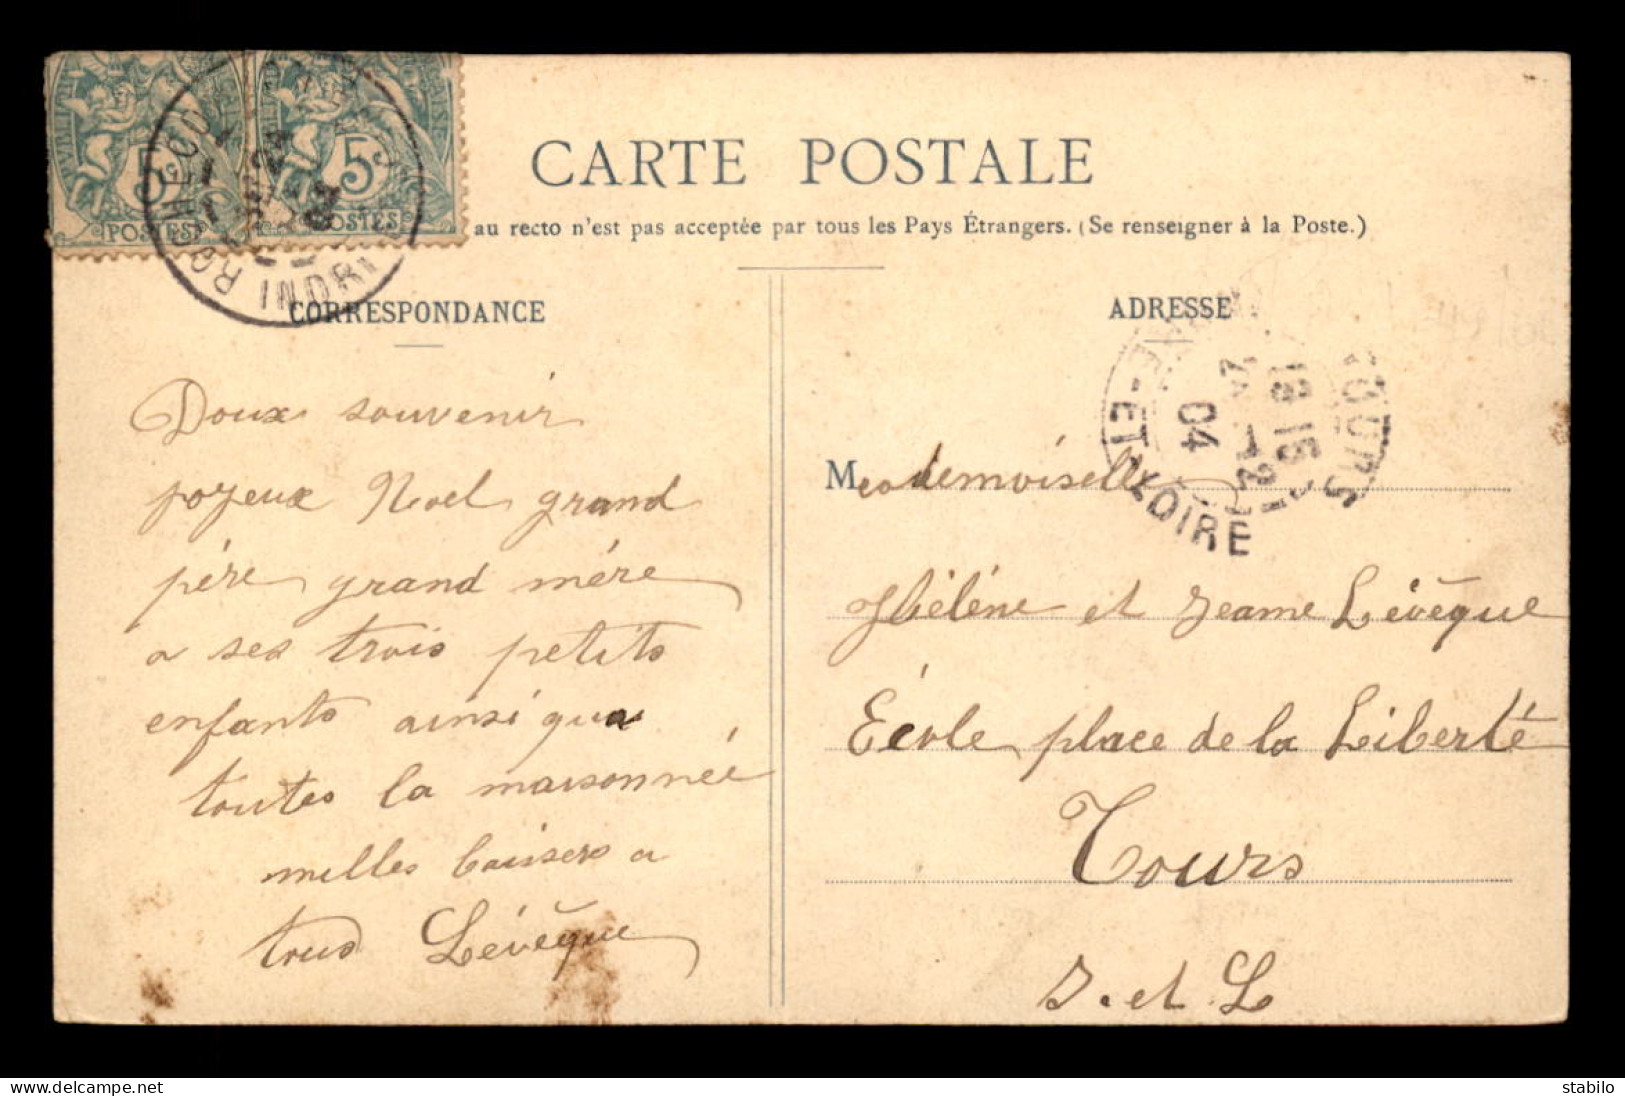 5c
POSTES
5c
POSTES
INDRE
CARTE POSTALE
au recto n'est pas acceptée par tous les Pays Étrangers. (Se renseigner à la Poste.)
CORRESPONDANCE
Doux souvenir
joyeux Noel grand
père grand mère
a ses trois petits
enfants ainsi qua
toutes la maisonnée
milles baisers a
tous Lévêque
ADRESSE
TOURS
18 15
04
ET-LOIRE
Mademoiselle
Hélène et Jeanne Lévêque
École place de la Liberté
Tours
I. et L
delcampe.net
stabilo